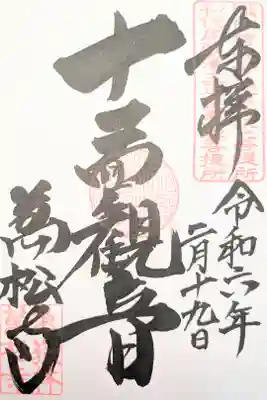 奉拝
令和六年
二月十九日
十一面観音
萬松寺